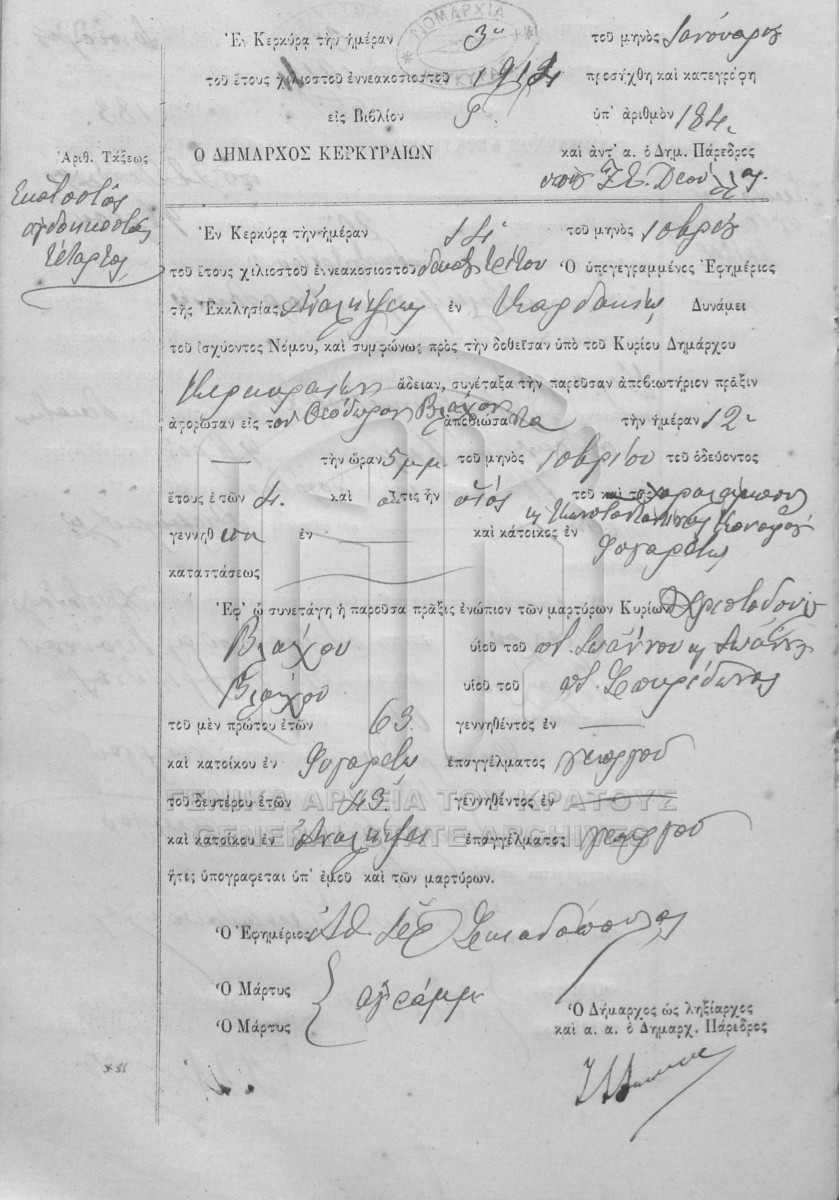 ΝΟΜΑΡΧΙΑ
Ἐν Κερκύρᾳ τὴν ἡμέραν 3ῃ τοῦ μηνὸς Ἰανουαρίου
τοῦ ἔτους χιλιοστοῦ ἐννεακοσιοστοῦ 1914 προσήχθη καὶ κατεγράφη
εἰς Βιβλίον ὑπ' ἀριθμὸν 184
Ἀριθ. Τάξεως Ὁ ΔΗΜΑΡΧΟΣ ΚΕΡΚΥΡΑΙΩΝ καὶ ἀντ' α. ὁ Δημ. Πάρεδρος
Ἑκατοστὸς
ὀγδοηκοστὸς
τέταρτος
Ἐν Κερκύρᾳ τὴν ἡμέραν 14 τοῦ μηνὸς 10βρίου
τοῦ ἔτους χιλιοστοῦ ἐννεακοσιοστοῦ δεκάτου τρίτου Ὁ ὑπεγεγραμμένος Ἐφημέριος
τῆς Ἐκκλησίας Ἀναλήψεως ἐν Καρδακίῳ Δυνάμει
τοῦ ἰσχύοντος Νόμου, καὶ συμφώνως πρὸς τὴν δοθεῖσαν ὑπὸ τοῦ Κυρίου Δημάρχου
Κερκυραίων ἄδειαν, συνέταξα τὴν παροῦσαν ἀπεβιωτήριον πρᾶξιν
ἀφορῶσαν εἰς τὸν Θεόδωρον Βλάχον ἀπεβιώσαντα τὴν ἡμέραν 12
— τὴν ὥραν 5 μμ. τοῦ μηνὸς 10βρίου τοῦ ὁδεύοντος
ἔτους ἐτῶν 4. καὶ ὅςτις ἦν υἱὸς τοῦ καὶ τῆς Χαραλάμπους
κ Κωνσταντίνας
γεννηθ ἐν — καὶ κάτοικος ἐν Φιγαρέτῳ
καταστάσεως —
Ἐφ' ᾧ συνετάγη ἡ παροῦσα πρᾶξις ἐνώπιον τῶν μαρτύρων Κυρίων Χριστοδούλου
Βλάχου υἱοῦ τοῦ ποτ. Ἰωάννου κ Ἰωάννου
Βλάχου υἱοῦ τοῦ ποτ. Σπυρίδωνος
τοῦ μὲν πρώτου ἐτῶν 63. γεννηθέντος ἐν —
καὶ κατοίκου ἐν Φιγαρέτῳ ἐπαγγέλματος γεωργοῦ
τοῦ δευτέρου ἐτῶν 43. γεννηθέντος ἐν —
ΓΕΝΙΚΑ ΑΡΧΕΙΑ ΤΟΥ ΚΡΑΤΟΥΣ
GENERAL STATE ARCHIVES
καὶ κατοίκου ἐν Ἀναλήψει ἐπαγγέλματος γεωργοῦ
ἥτις ὑπογράφεται ὑπ' ἐμοῦ καὶ τῶν μαρτύρων.
Ὁ Ἐφημέριος
Ὁ Μάρτυς
ἀγράμμ
Ὁ Μάρτυς
Ὁ Δήμαρχος ὡς ληξίαρχος
καὶ α. α. ὁ Δημαρχ. Πάρεδρος